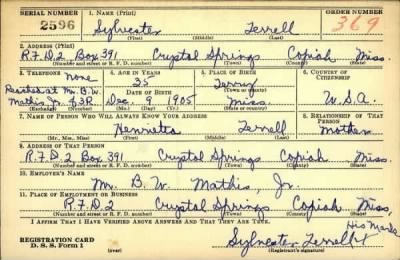 SERIAL NUMBER 1. NAME (Print) ORDER NUMBER
2596 Sylvester Terrell 369
(First) (Middle) (Last)
2. ADDRESS (Print)
R.F.D.2 Box 391 Crystal Springs Copiah Miss.
(Number and street or R. F. D. number) (Town) (County) (State)
3. TELEPHONE 4. AGE IN YEARS 5. PLACE OF BIRTH 6. COUNTRY OF CITIZENSHIP
None 35 Terry
Reached at Mr. B.W. DATE OF BIRTH (Town or county)
Mathis Jr. Dec. 9 1905 Miss. U.S.A.
(Exchange) (Number) (Mo.) (Day) (Yr.) (State or country)
7. NAME OF PERSON WHO WILL ALWAYS KNOW YOUR ADDRESS 8. RELATIONSHIP OF THAT PERSON
Henrietta Terrell Mother
(Mr., Mrs., Miss) (First) (Middle) (Last)
9. ADDRESS OF THAT PERSON
R.F.D.2 Box 391 Crystal Springs Copiah Miss.
(Number and street or R. F. D. number) (Town) (County) (State)
10. EMPLOYER'S NAME
Mr. B. W. Mathis, Jr.
11. PLACE OF EMPLOYMENT OR BUSINESS
R.F.D.2 Crystal Springs Copiah Miss.
(Number and street or R. F. D. number) (Town) (County) (State)
I AFFIRM THAT I HAVE VERIFIED ABOVE ANSWERS AND THAT THEY ARE TRUE.
His Mark
REGISTRATION CARD Sylvester Terrell X
D. S. S. Form 1 (Registrant's signature)